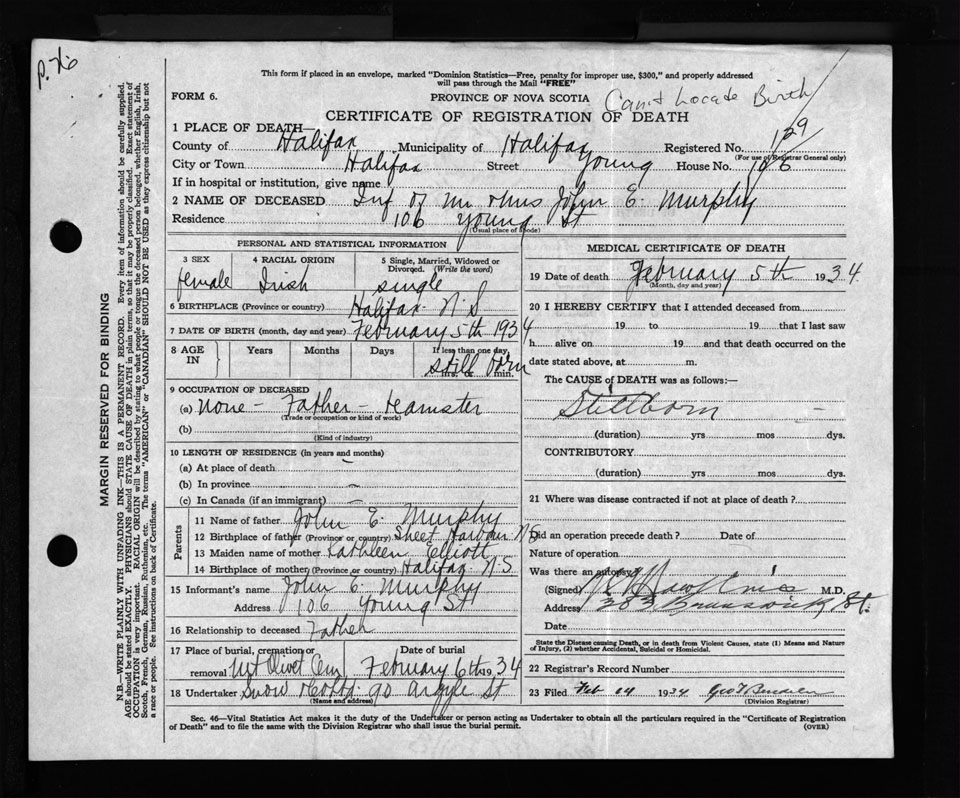 p. 76
This form if placed in an envelope, marked "Dominion Statistics—Free, penalty for improper use, $300," and properly addressed
will pass through the Mail "FREE"
FORM 6.
PROVINCE OF NOVA SCOTIA
Can't Locate Birth
CERTIFICATE OF REGISTRATION OF DEATH
1 PLACE OF DEATH—
County of Halifax Municipality of Halifax Registered No. 129
(For use of Registrar General only)
City or Town Halifax Street Young House No. 106
If in hospital or institution, give name
2 NAME OF DECEASED Inf of Mr & Mrs John E. Murphy
Residence 106 Young St
(Usual place of abode)
PERSONAL AND STATISTICAL INFORMATION
3 SEX 4 RACIAL ORIGIN 5 Single, Married, Widowed or
Divorced. (Write the word)
female Irish single
6 BIRTHPLACE (Province or country) Halifax N.S
7 DATE OF BIRTH (month, day and year) February 5th 1934
8 AGE IN Years Months Days If less than one day
still born
hrs. or min.
9 OCCUPATION OF DECEASED
(a) None - Father - teamster
(Trade or occupation or kind of work)
(b)
(Kind of industry)
10 LENGTH OF RESIDENCE (in years and months)
(a) At place of death
(b) In province
(c) In Canada (if an immigrant)
Parents
11 Name of father John E. Murphy
12 Birthplace of father (Province or country) Sheet Harbour N.S
13 Maiden name of mother Kathleen Elliott
14 Birthplace of mother (Province or country) Halifax N.S
15 Informant's name John E. Murphy
Address 106 Young St
16 Relationship to deceased Father
17 Place of burial, cremation or removal Mt Olivet Cem
Date of burial February 6th 1934
18 Undertaker Snow & Co Ltd 90 Argyle St
(Name and address)
MEDICAL CERTIFICATE OF DEATH
19 Date of death February 5th 1934
(Month, day and year)
20 I HEREBY CERTIFY that I attended deceased from
19 to 19 that I last saw
h alive on 19 and that death occurred on the
date stated above, at m.
The CAUSE of DEATH was as follows:—
Stillborn
(duration) yrs mos dys.
CONTRIBUTORY
(duration) yrs mos dys.
21 Where was disease contracted if not at place of death?
Did an operation precede death? Date of
Nature of operation
Was there an autopsy?
(Signed) M.D.
Address 383 Brunswick St.
Date
State the Disease causing Death, or in death from Violent Causes, state (1) Means and Nature
of Injury, (2) whether Accidental, Suicidal or Homicidal.
22 Registrar's Record Number
23 Filed Feb 1934
(Division Registrar)
Sec. 46—Vital Statistics Act makes it the duty of the Undertaker or person acting as Undertaker to obtain all the particulars required in the "Certificate of Registration
of Death" and to file the same with the Division Registrar who shall issue the burial permit.
(OVER)
MARGIN RESERVED FOR BINDING
N.B.—WRITE PLAINLY WITH UNFADING INK—THIS IS A PERMANENT RECORD. Every item of information should be carefully supplied.
AGE should be stated EXACTLY. PHYSICIANS should STATE CAUSE OF DEATH in plain terms, so that it may be properly classified. Exact statement of
OCCUPATION is very important. RACIAL ORIGIN will be described by stating to what people or tongue the deceased person belonged, whether English, Irish,
Scotch, French, German, Russian, Ruthenian, etc. The terms "AMERICAN" or "CANADIAN" SHOULD NOT BE USED as they express citizenship but not
a race or people. See instructions on back of Certificate.